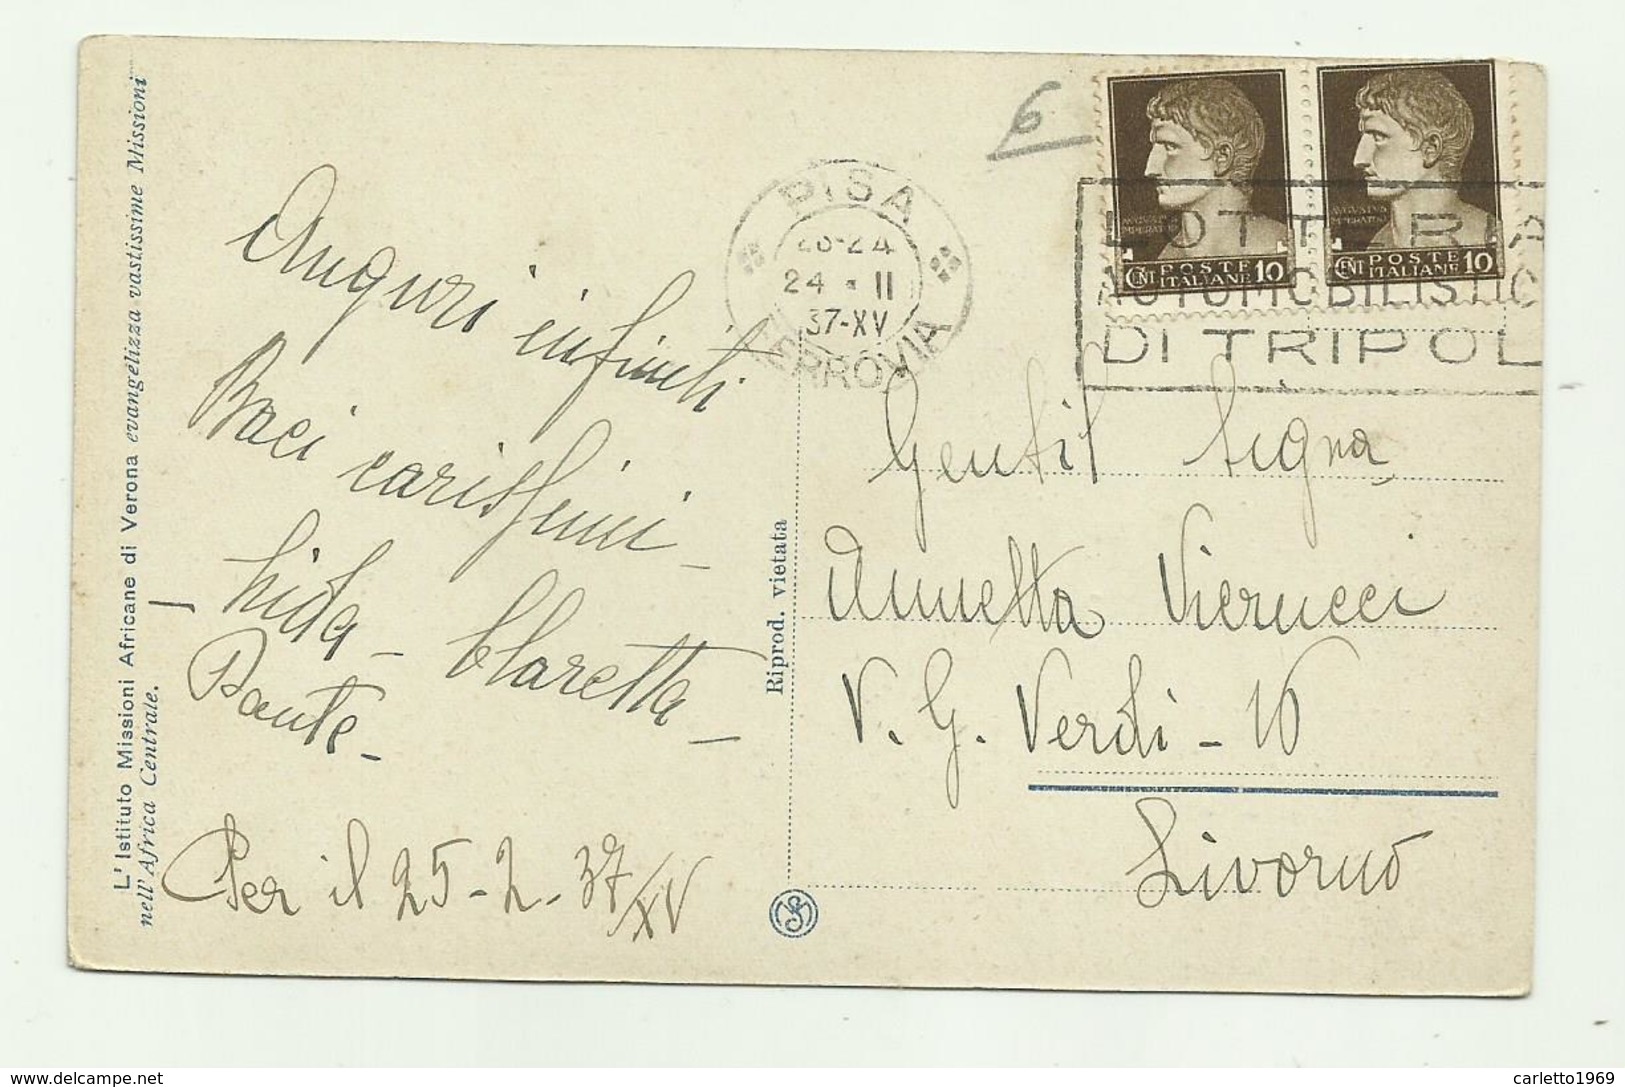 L' Istituto Missioni Africane di Verona evangelizza vastissime Missioni
nell' Africa Centrale.
Auguri infiniti
Baci carissimi -
- Lida - Claretta -
Dante -
Per il 25-2-37/XV
Riprod. vietata
6
PISA
23-24
24 - II
37-XV
FERROVIA
AVGVSTVS
IMPERATOR
CENT POSTE
ITALIANE 10
AVGVSTVS
IMPERATOR
CENT POSTE
ITALIANE 10
LOTTERIA
AUTOMOBILISTIC
DI TRIPOL
Gentil Signa
Annetta Vierucci
V. G. Verdi - 16
Livorno
carletto1969